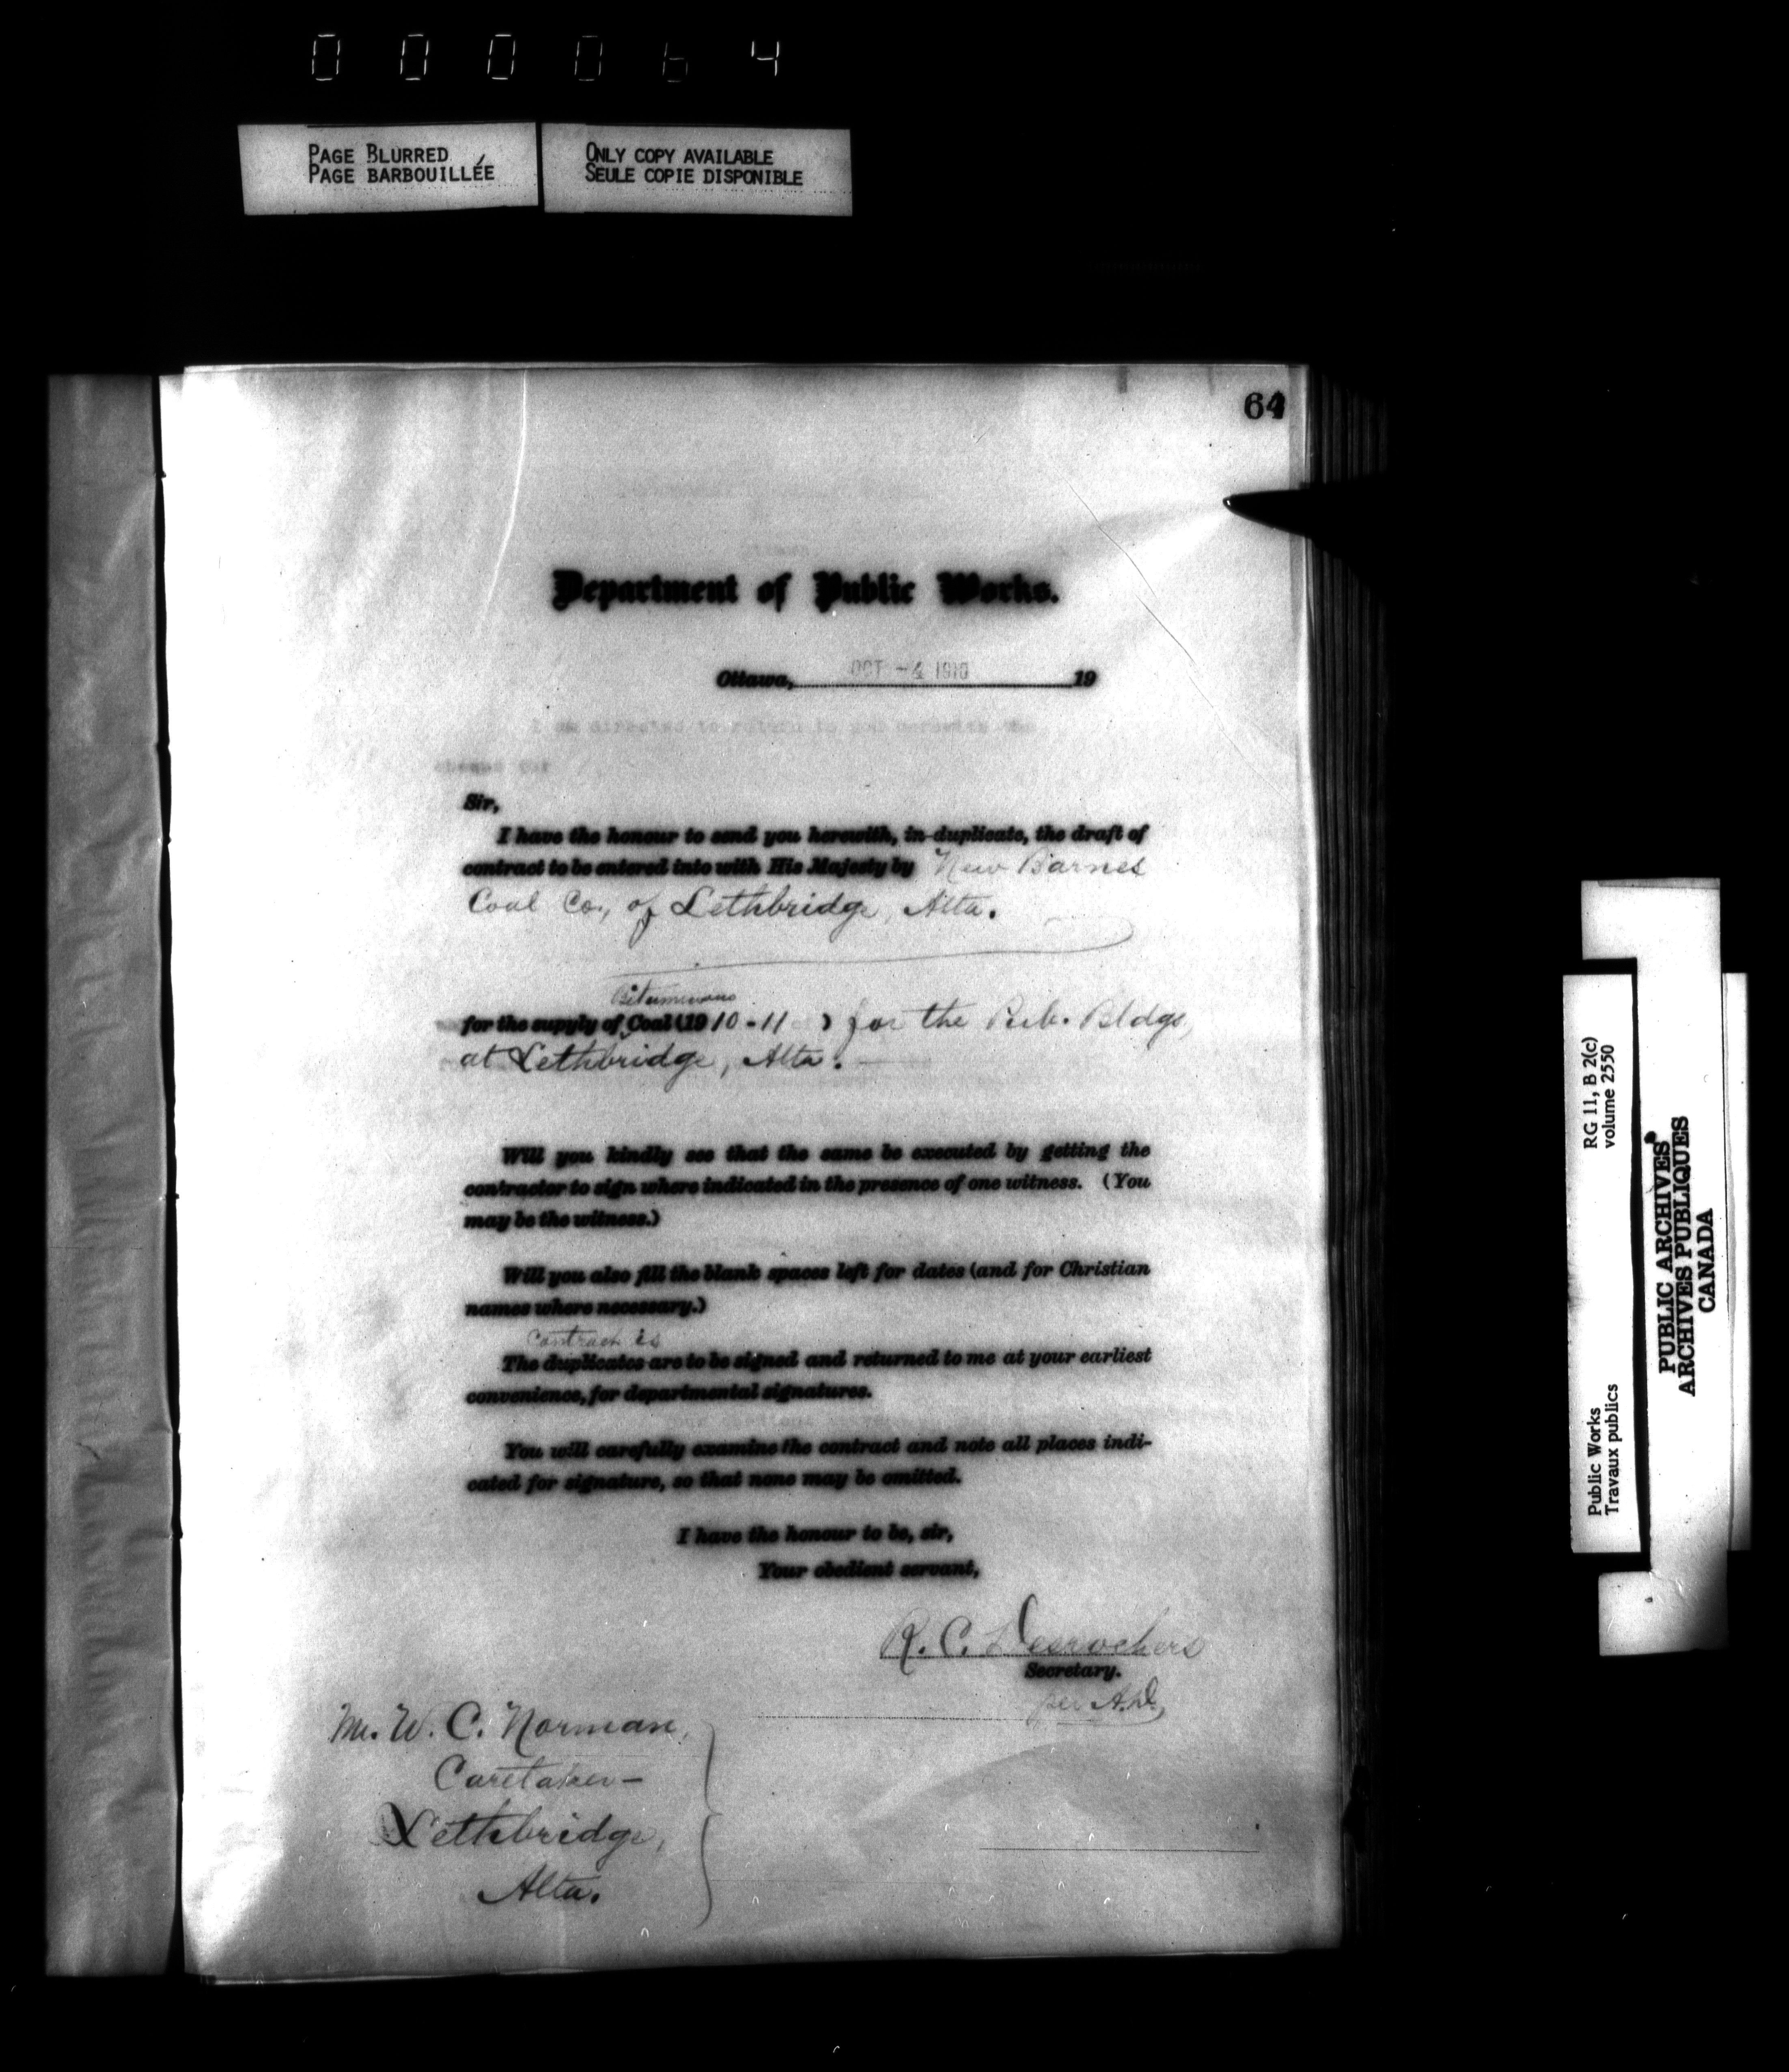 000064
PAGE BLURRED
PAGE BARBOUILLÉE
ONLY COPY AVAILABLE
SEULE COPIE DISPONIBLE
64
Department of Public Works.
Ottawa, OCT - 4 1910 19
I am directed to return to you herewith the
cheque for
Sir,
I have the honour to send you herewith, in-duplicate, the draft of
contract to be entered into with His Majesty by New Barnes
Coal Co., of Lethbridge, Alta.
Bituminous
for the supply of Coal (1910-11 ) for the Pub. Bldgs,
at Lethbridge, Alta.
Will you kindly see that the same be executed by getting the
contractor to sign where indicated in the presence of one witness. (You
may be the witness.)
Will you also fill the blank spaces left for dates (and for Christian
names where necessary.)
Contract is
The duplicates are to be signed and returned to me at your earliest
convenience, for departmental signatures.
You will carefully examine the contract and note all places indi-
cated for signature, so that none may be omitted.
I have the honour to be, sir,
Your obedient servant,
R. C. Desrochers
Secretary.
per A.D.
Mr. W. C. Norman,
Caretaker-
Lethbridge,
Alta.
RG 11, B 2(c)
volume 2550
Public Works
Travaux publics
PUBLIC ARCHIVES
ARCHIVES PUBLIQUES
CANADA